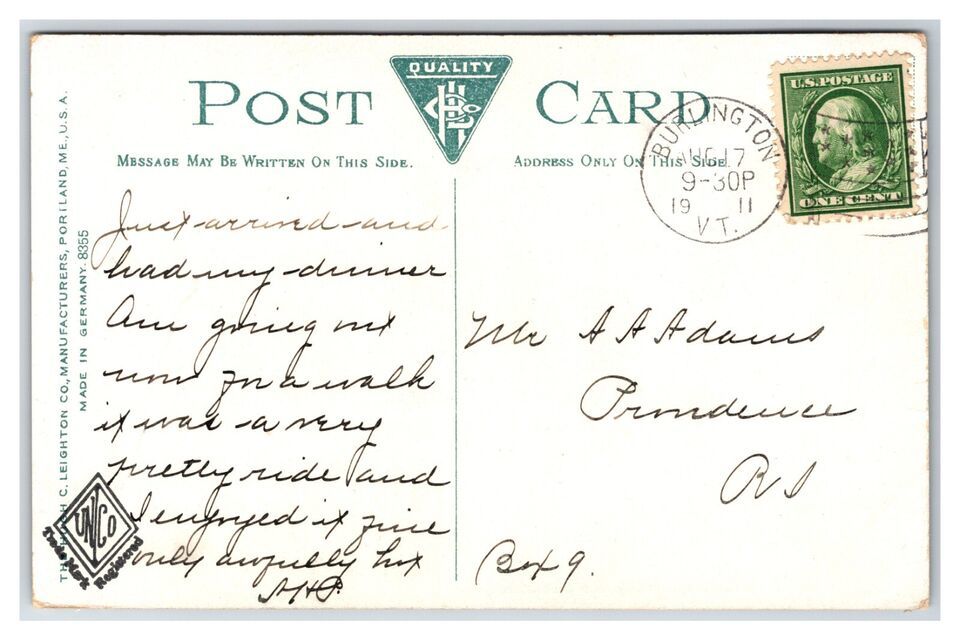 POST CARD
QUALITY
MESSAGE MAY BE WRITTEN ON THIS SIDE.
ADDRESS ONLY ON THIS SIDE.
BURLINGTON
AUG 17
9-30P
19 11
VT.
U.S. POSTAGE
ONE CENT
C. LEIGHTON CO., MANUFACTURERS, PORTLAND, ME., U.S.A.
MADE IN GERMANY. 8355
Just arrived and
had my dinner
Am going out
now for a walk
it was a very
pretty ride and
I enjoyed it fine
only awfully hot
Mr A A Adams
Providence
R I
Box 9.
UNCO
Trade Mark Registered